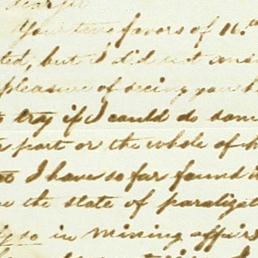 Dear Sir
Your two favors of 16th
ted, but I did not ans
pleasure of seeing you h
try if I could do som
part or the whole of
I have so far found i
the state of paralizat
so in mining affairs